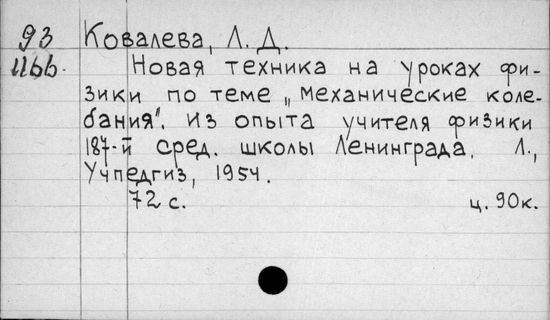 93 Ковалева, Л. Д.
1166. Новая техника на уроках фи-
зики по теме „Механические коле-
бания". Из опыта учителя физики
187-й сред. школы Ленинграда. Л.,
Учпедгиз, 1954.
72 с. ц. 90к.